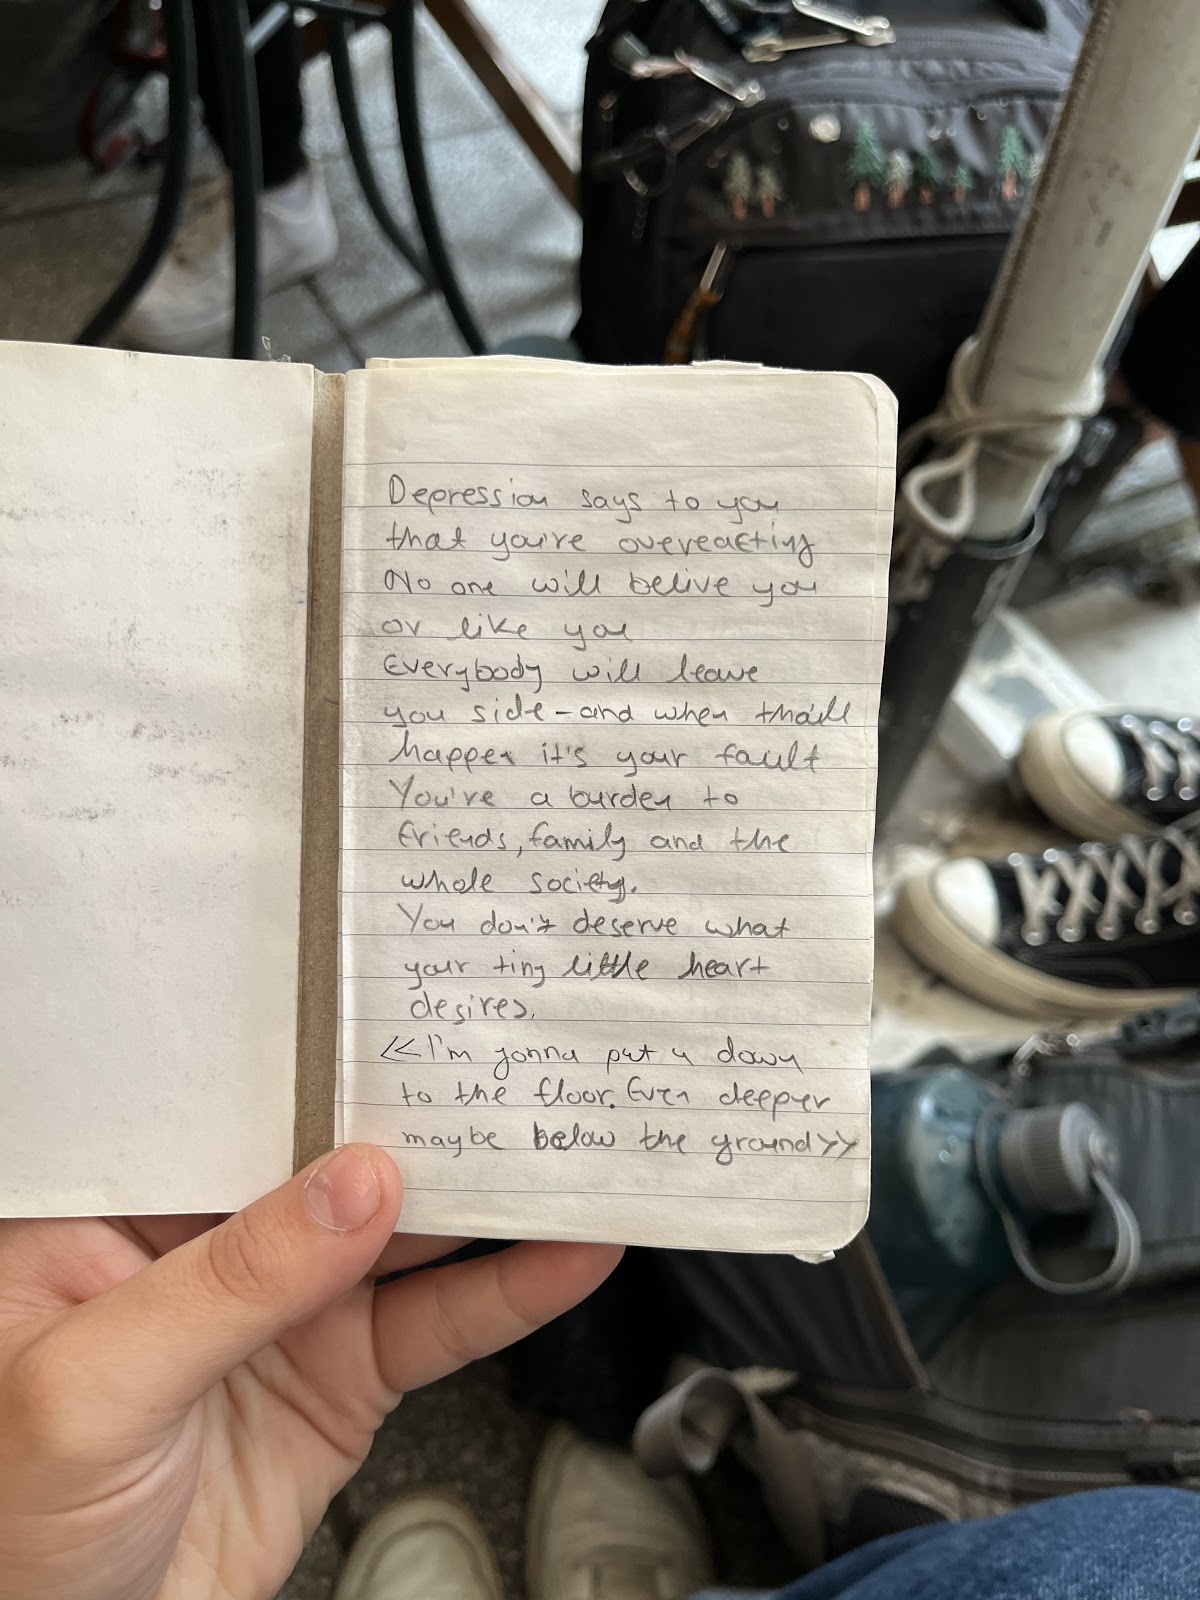 Depression says to you
that you're overeacting
No one will belive you
or like you
Everybody will leave
you side - and when tha'll
happen it's your fault
You're a burden to
friends, family and the
whole society.
You don't deserve what
your tiny little heart
desires.
<<I'm gonna put u down
to the floor. Even deeper
maybe below the ground>>